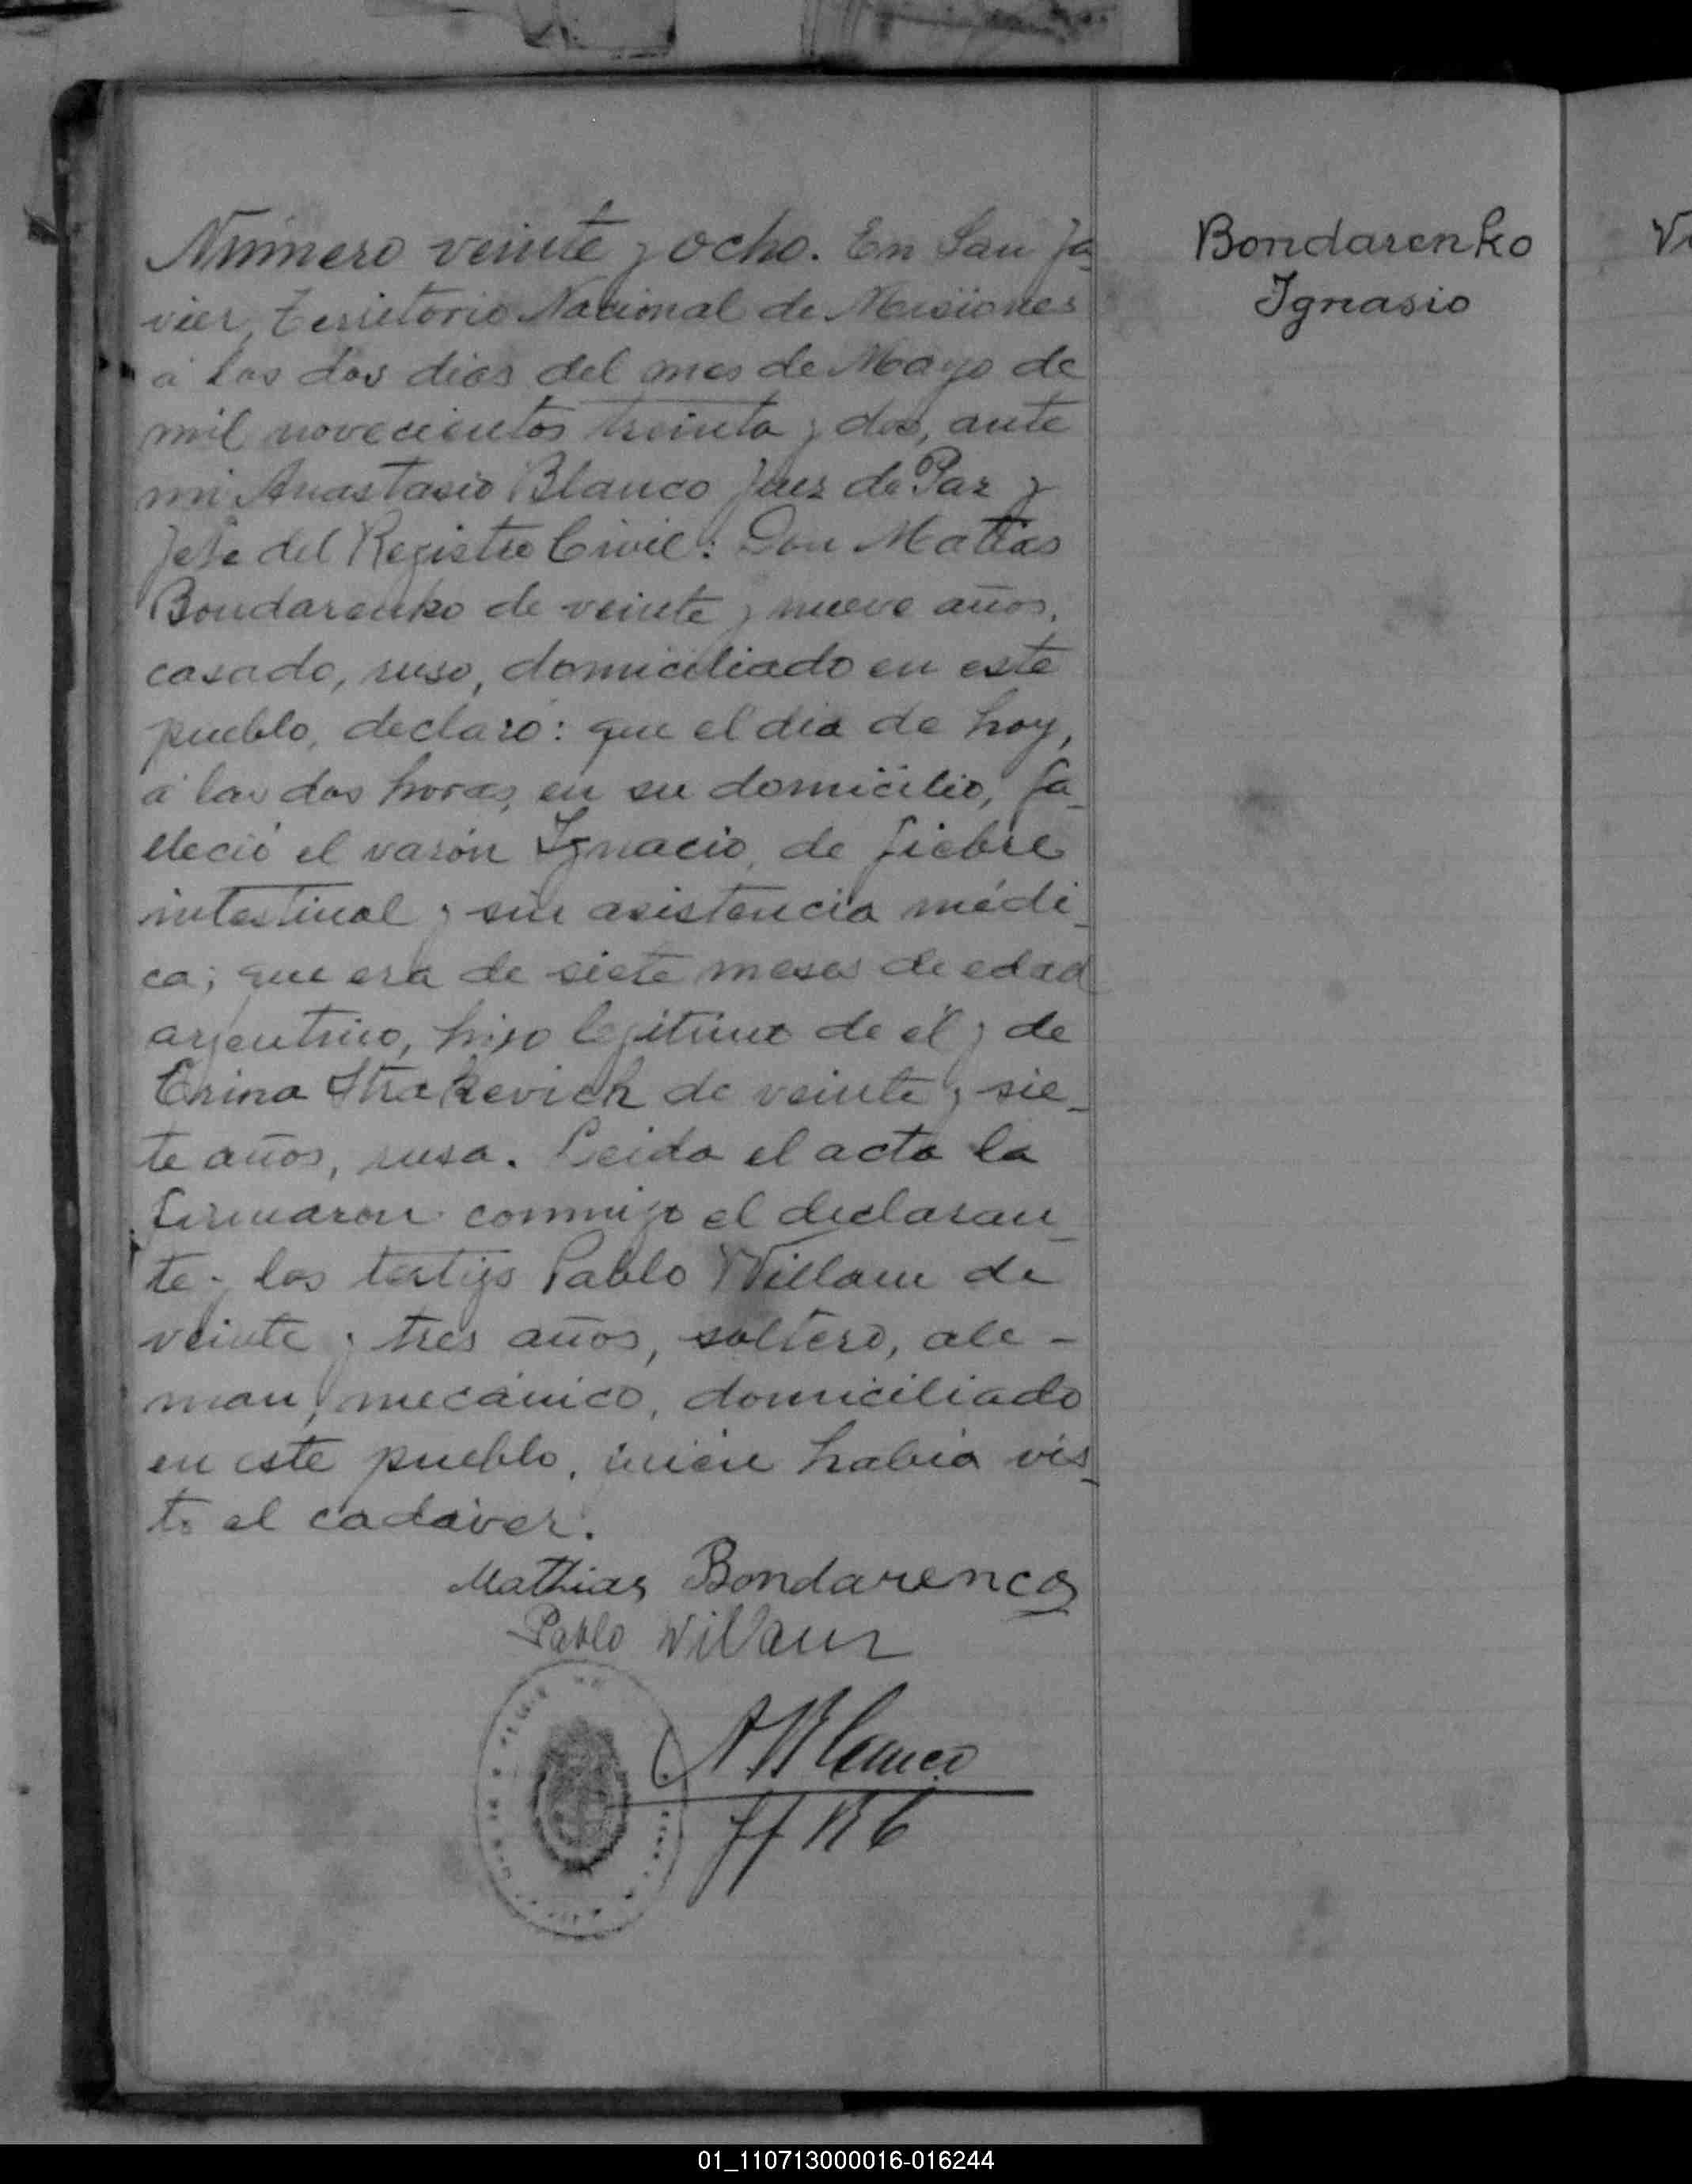 Número veinte y ocho. En San Ja_
vier, Territorio Nacional de Misiones
á los dos dias del mes de Mayo de
mil novecientos treinta y dos, ante
mi Anastasio Blanco Juez de Paz y
Jefe del Registro Civil: Don Matias
Bondarenko de veinte y nueve años,
casado, ruso, domiciliado en este
pueblo, declaró: que el dia de hoy,
á las dos horas, en su domicilio, fa_
lleció el varón Ignacio, de fiebre
intestinal y sin asistencia médi_
ca; que era de siete meses de edad
argentino, hijo legitimo de él y de
Erina Strakevich de veinte y sie_
te años, rusa. Leida el acta la
firmaron conmigo el declaran_
te y los testigo Pablo Willam de
veinte y tres años, soltero, ale-
man, mecánico, domiciliado
en este pueblo, había vis_
to el cadáver.
Mathias Bondarenco
Pablo Willam
ABlanco
Bondarenko
Ignasio
01_110713000016-016244